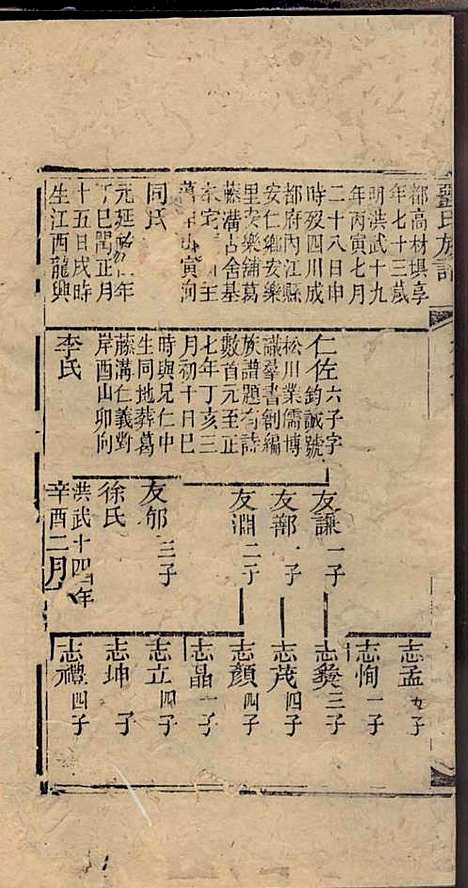 氏族譜
都高材埧享
年七十三歲
明洪武十九
年丙寅七月
二十八日申
時歿四川成
都府內江縣
安仁鄉安樂
里安樂舖葛
藤溝古舍基
本宅
山寅向
同氏
元延祐 年
丁巳閏正月
十五日戌時
生江西龍興
仁佐 六子字鈞誠號
松川業儒博
議羣書創編
族譜題有詩
數首元至正
七年丁亥三
月初十日巳
時與兄仁中
生同地葬葛
藤溝仁義對
岸酉山卯向
李氏
友謙 一子
友鄰 一子
友淵 二子
友郇 三子
徐氏
洪武十四年
辛酉二月
志孟 九子
志恂 一子
志彝 三子
志茂 四子
志顏 四子
志晶 一子
志立 四子
志坤 子
志禮 四子